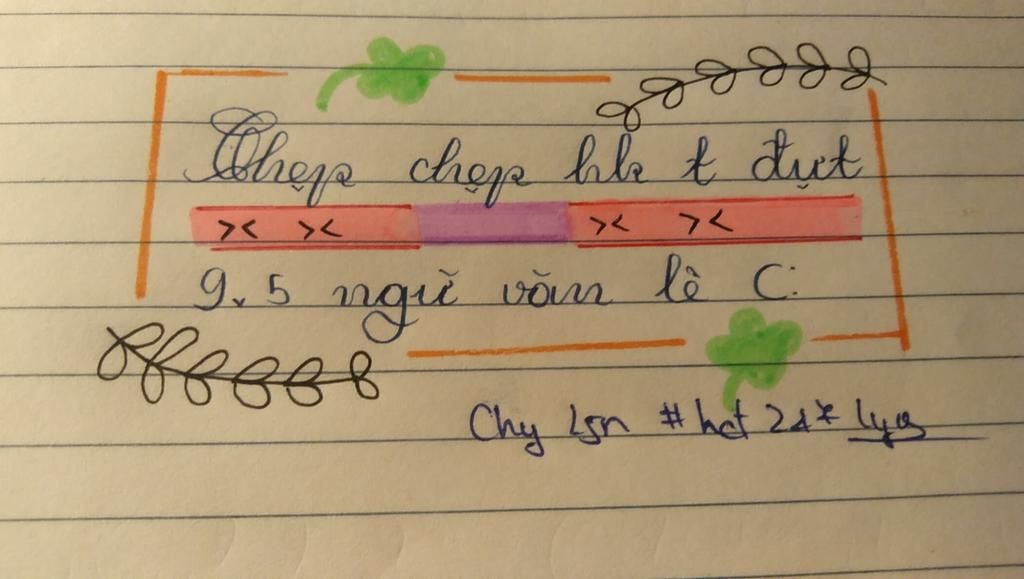 Chẹp chẹp hk t đụt
>< >< >< ><
9.5 ngữ văn lè C:
Chy Lsn #hct 2d*